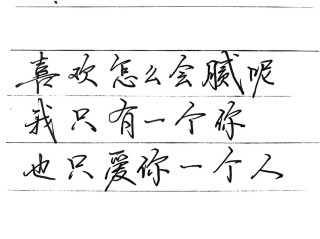 喜欢怎么会腻呢
我只有一个你
也只爱你一个人